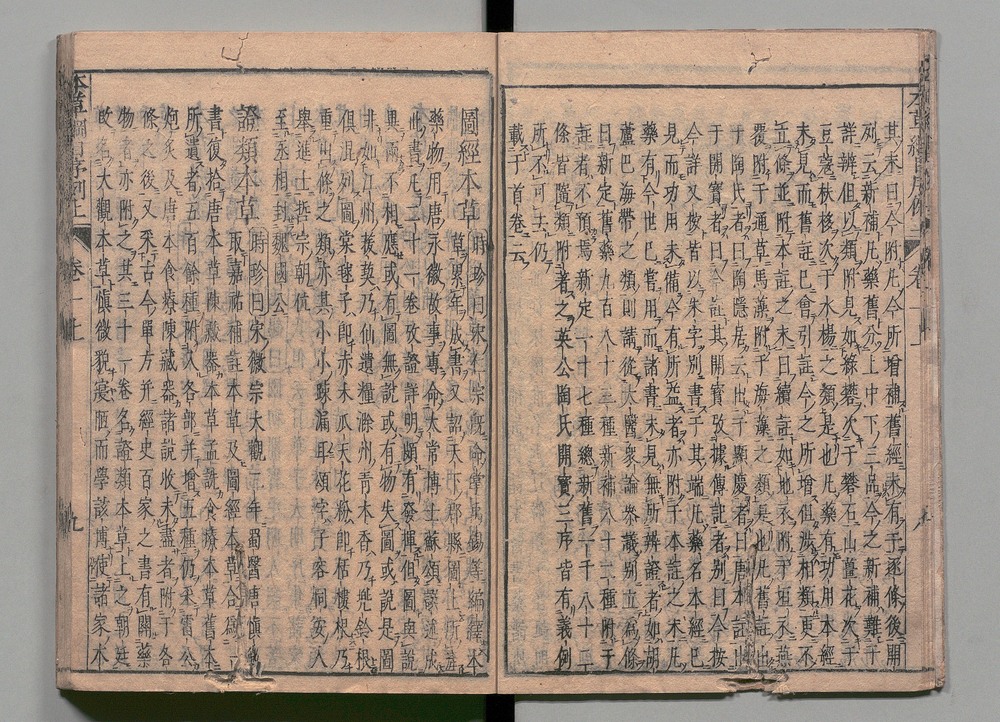 本草綱目序例上
卷一上
其末曰今附凡今所增補舊經未有于逐條後開
列云新補凡藥舊分上中下三品今之新補難于
詳辨但以類附見如綠礬次于礬石山薑花次于
豆蔻扶栘次于水楊之類是也凡藥有功用本經
未見而舊註已曾引註今之所增但涉相類更不
立條並附本註之末曰續註如地衣附于垣衣燕
覆附于通草馬藻附于海藻之類是也凡舊註出
于陶氏者曰陶隱居云出于顯慶者曰唐本註出
于開寶者曰今註其開寶攷據傳記者別曰今按
今詳又按皆以朱字別書于其端凡藥名本經已
見而功用未備今有所益者亦附于本註之末凡
藥有今世已嘗用而諸書未見無所辨證者如胡
蘆巴海帶之類則請從太醫衆論參議別立爲條
曰新定舊藥九百八十三種新補八十二種附于
註者不預焉新定一十七種總新舊一千八十二
條皆隨類附著之英公陶氏開寶三序皆有義例
所不可去仍
載于首卷云
圖經本草 時珍曰宋仁宗既命掌禹錫等編繹本
草累年成書又詔天下郡縣圖上所產
藥物用唐永徽故事專命太常博士蘇頌撰述成
此書凡二十一卷攷證詳明頗有發揮但圖與說
異兩不相應或有圖無說或有物失圖或說是圖
非如江州菝葜乃仙遺糧滁州青木香乃兜鈴根
俱混列圖棠毬子即赤禾瓜天花粉即栝樓根乃
重出條之類亦其小小疎漏耳頌字子容同安人
舉進士哲宗朝
至丞相封魏國公
證類本草 時珍曰宋徽宗大觀二年蜀醫唐慎微
取嘉祐補註本草及圖經本草合爲一
書復拾唐本草陳藏器本草孟詵食療本草舊本
所遺者五百餘種附入各部并增五種仍采雷公
炮炙及唐本食療陳藏器諸說收未盡者附于各
條之後又采古今單方并經史百家之書有關藥
物者亦附之共三十一卷名證類本草上之朝廷
改名大觀本草慎微貌寢陋而學該博使諸家本
本草綱目序例上
卷一上
九